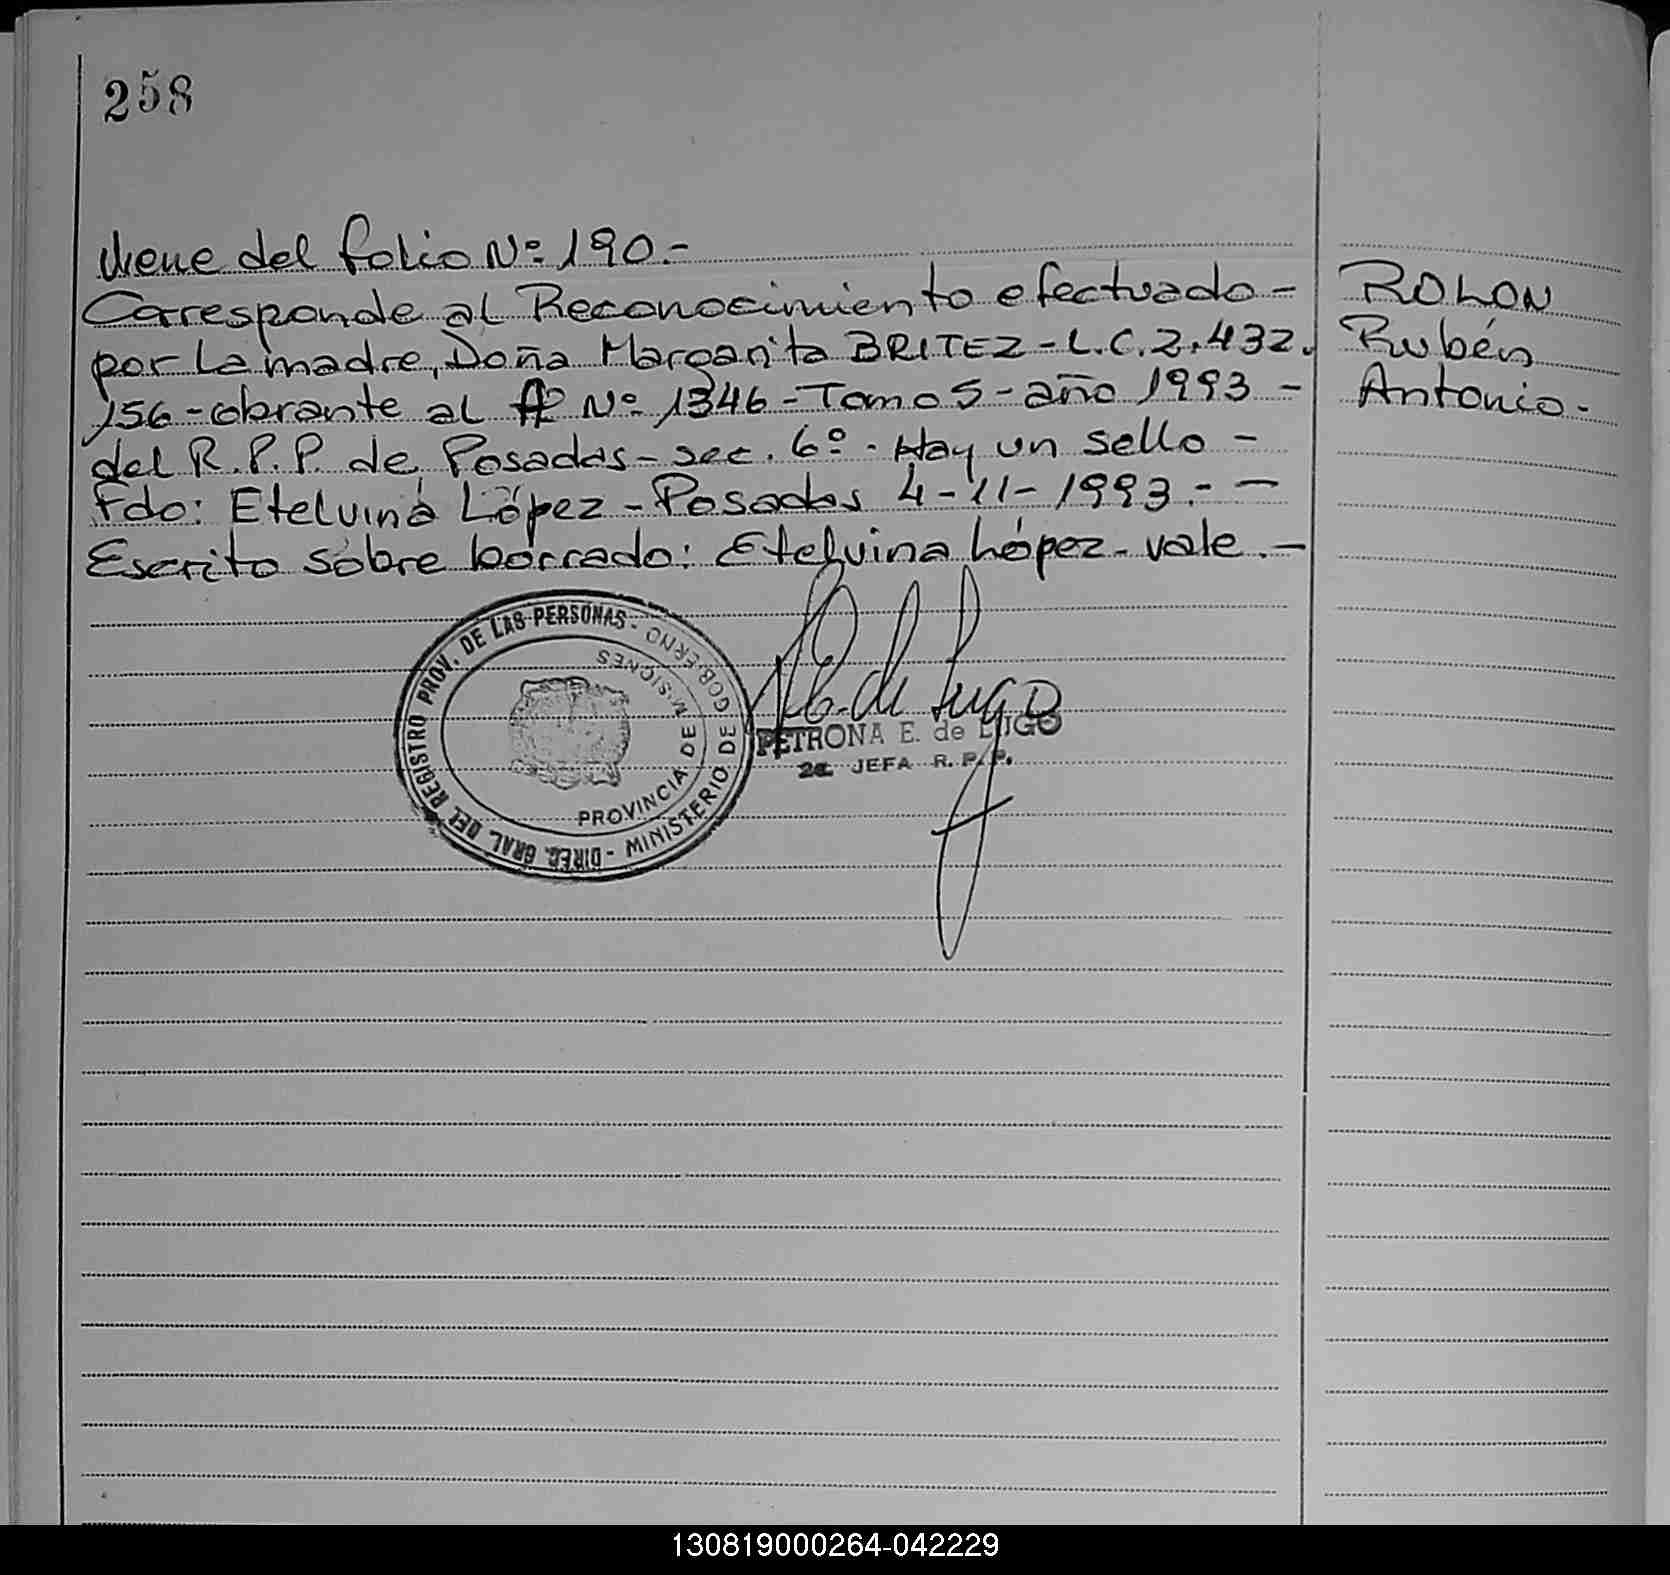 258
Viene del folio Nº 190.-
Corresponde al Reconocimiento efectuado -
por la madre, Doña Margarita BRITEZ - L.C. 2.432.
156 - obrante al Nº 1346 - Tomo 5 - año 1993 -
del R.P.P. de Posadas - sec. 6º. Hay un sello -
Fdo: Etelvina López - Posadas 4-11-1993.- -
Escrito sobre borrado: Etelvina López - vale. -
ROLON
Rubén
Antonio.
DIREC. GRAL DEL REGISTRO PROV. DE LAS PERSONAS - MINISTERIO DE GOBIERNO
PROVINCIA DE MISIONES
E. de Lugo
PETRONA E. de LUGO
2a. JEFA R. P. P.
130819000264-042229